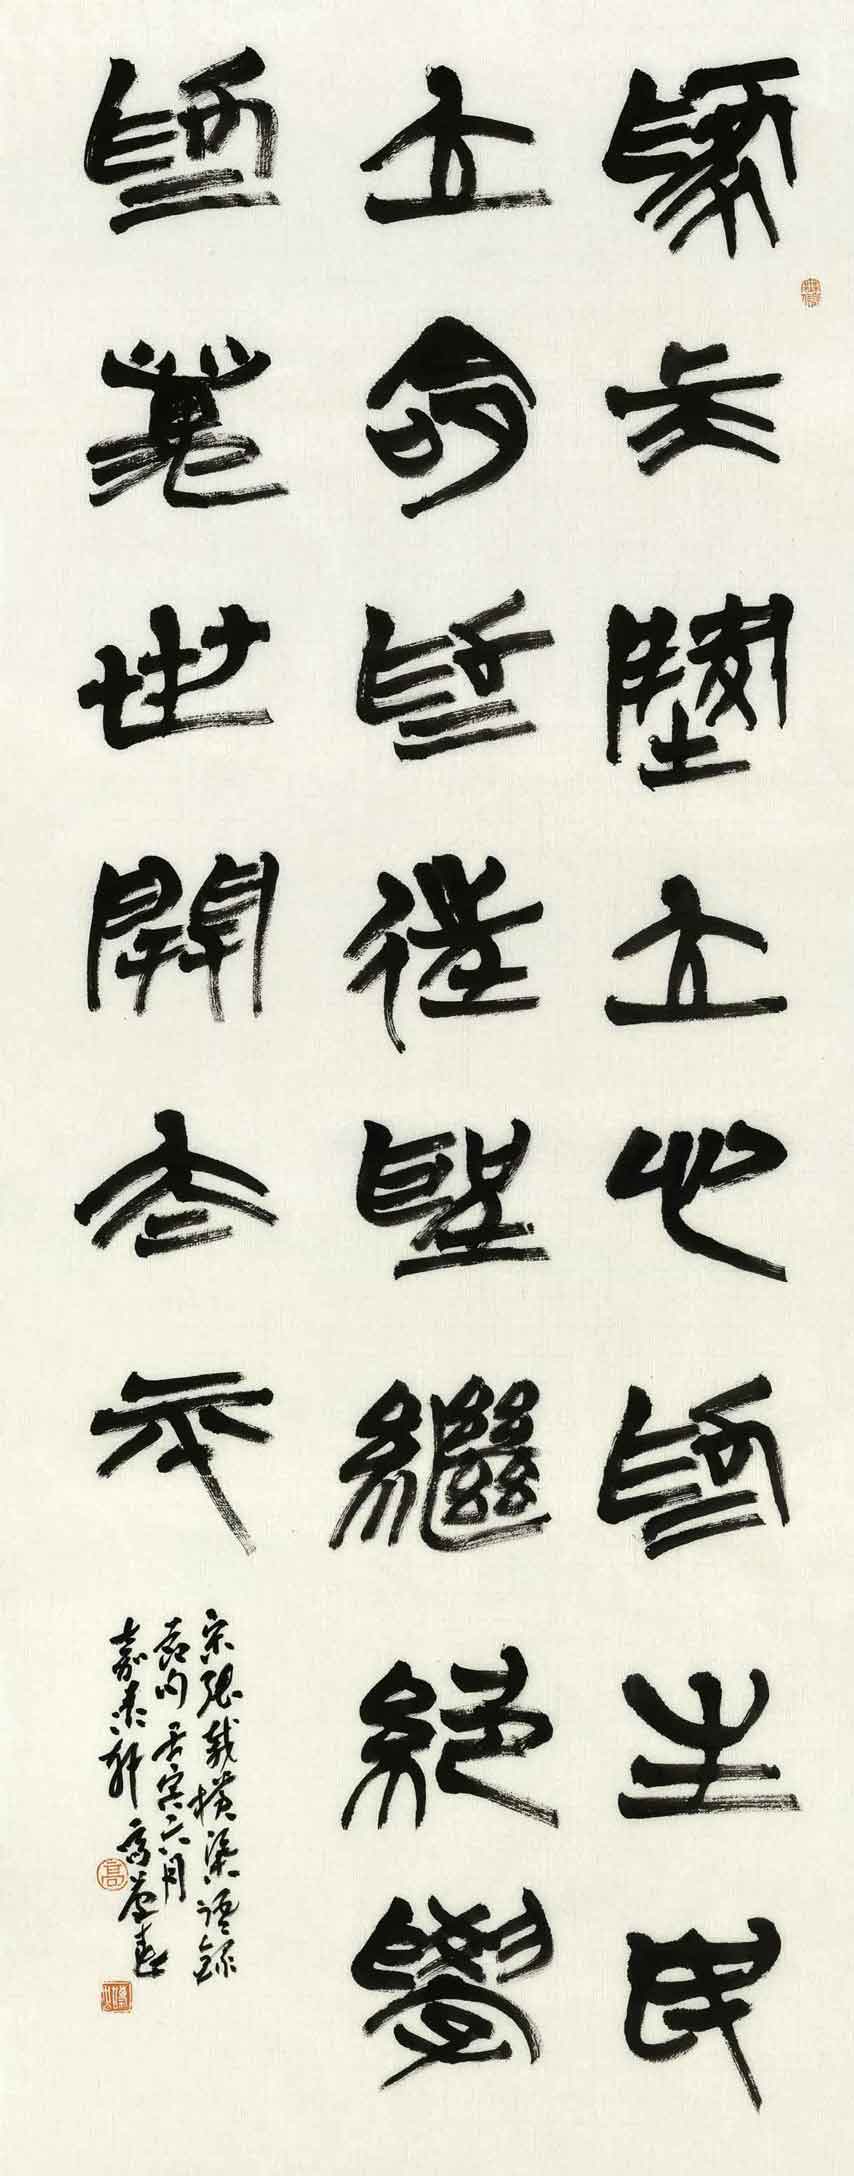 為天地立心為生民
立命為往聖繼絕學
為萬世開太平
宋張載橫渠語錄
句 庚寅六月
嘉 軒 高慶春
高